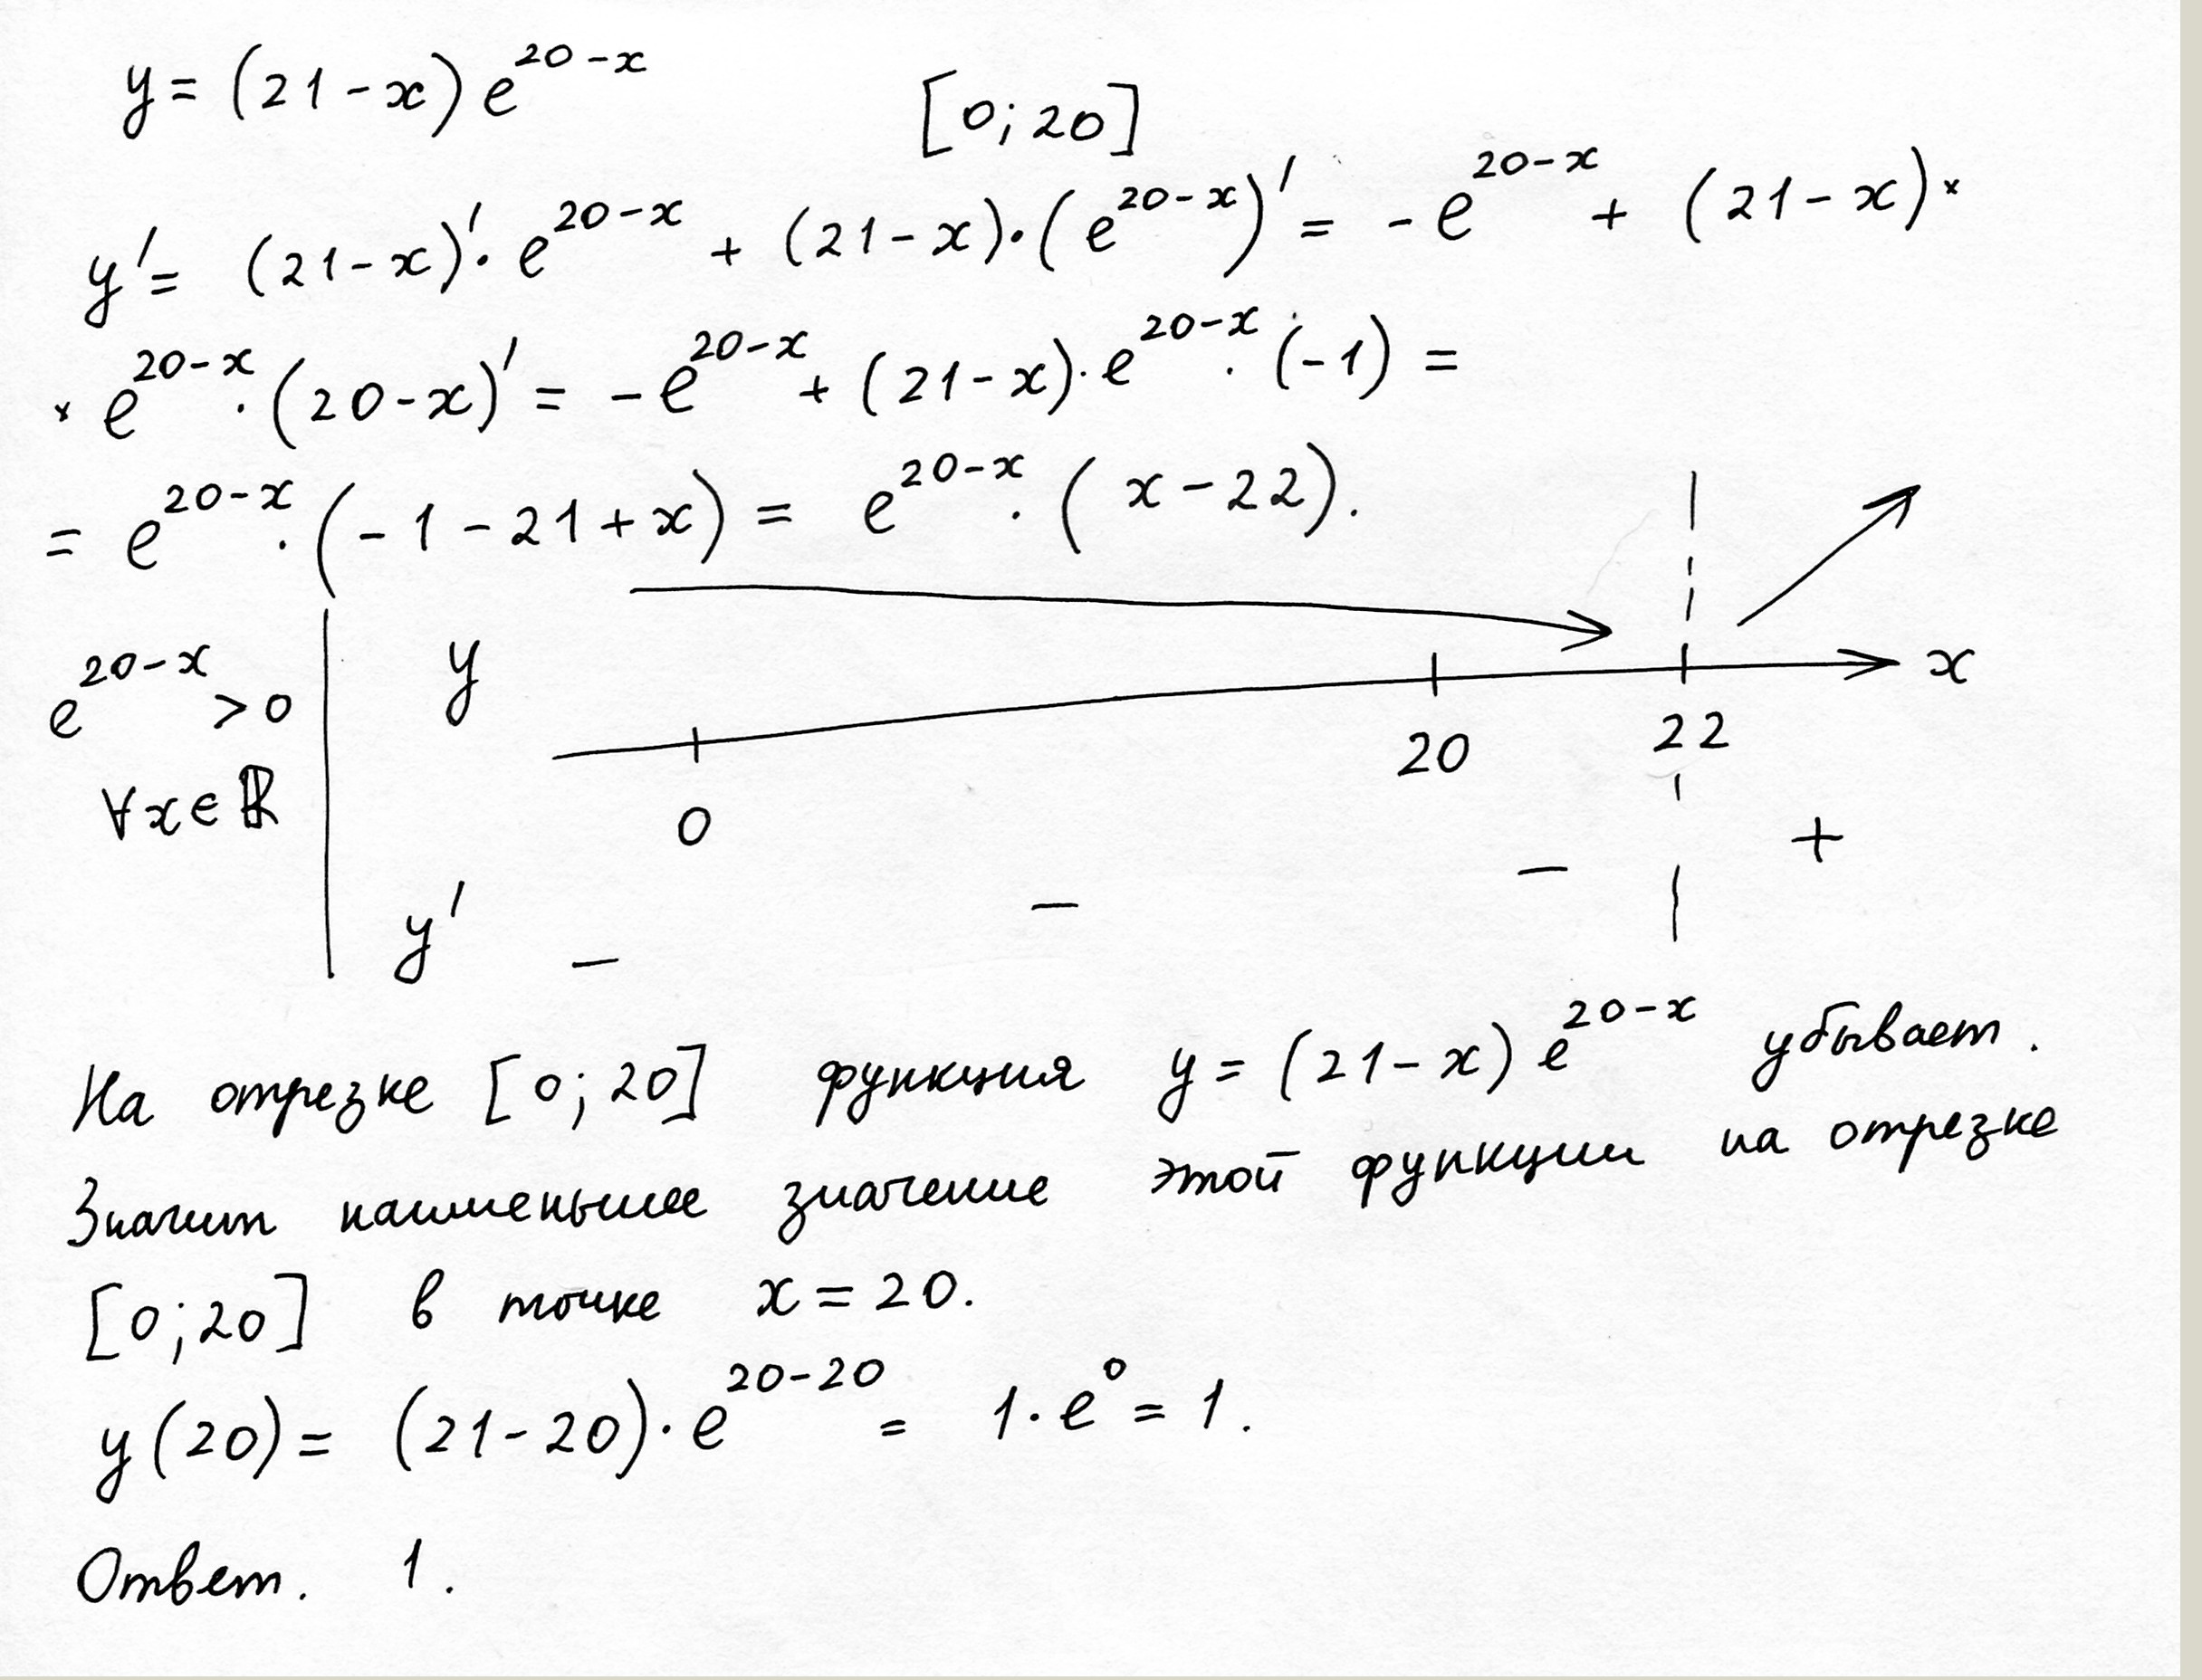 y = (21-x) e^{20-x} [0; 20]
y' = (21-x)' · e^{20-x} + (21-x) · (e^{20-x})' = - e^{20-x} + (21-x) ×
× e^{20-x} · (20-x)' = - e^{20-x} + (21-x) · e^{20-x} · (-1) =
= e^{20-x} · (-1-21+x) = e^{20-x} · (x-22).
e^{20-x} > 0
∀x∈ℝ
y
0 20 22 x
y' - - - +
На отрезке [0; 20] функция y = (21-x) e^{20-x} убывает.
Значит наименьшее значение этой функции на отрезке
[0; 20] в точке x = 20.
y(20) = (21-20) · e^{20-20} = 1 · e^0 = 1.
Ответ. 1.